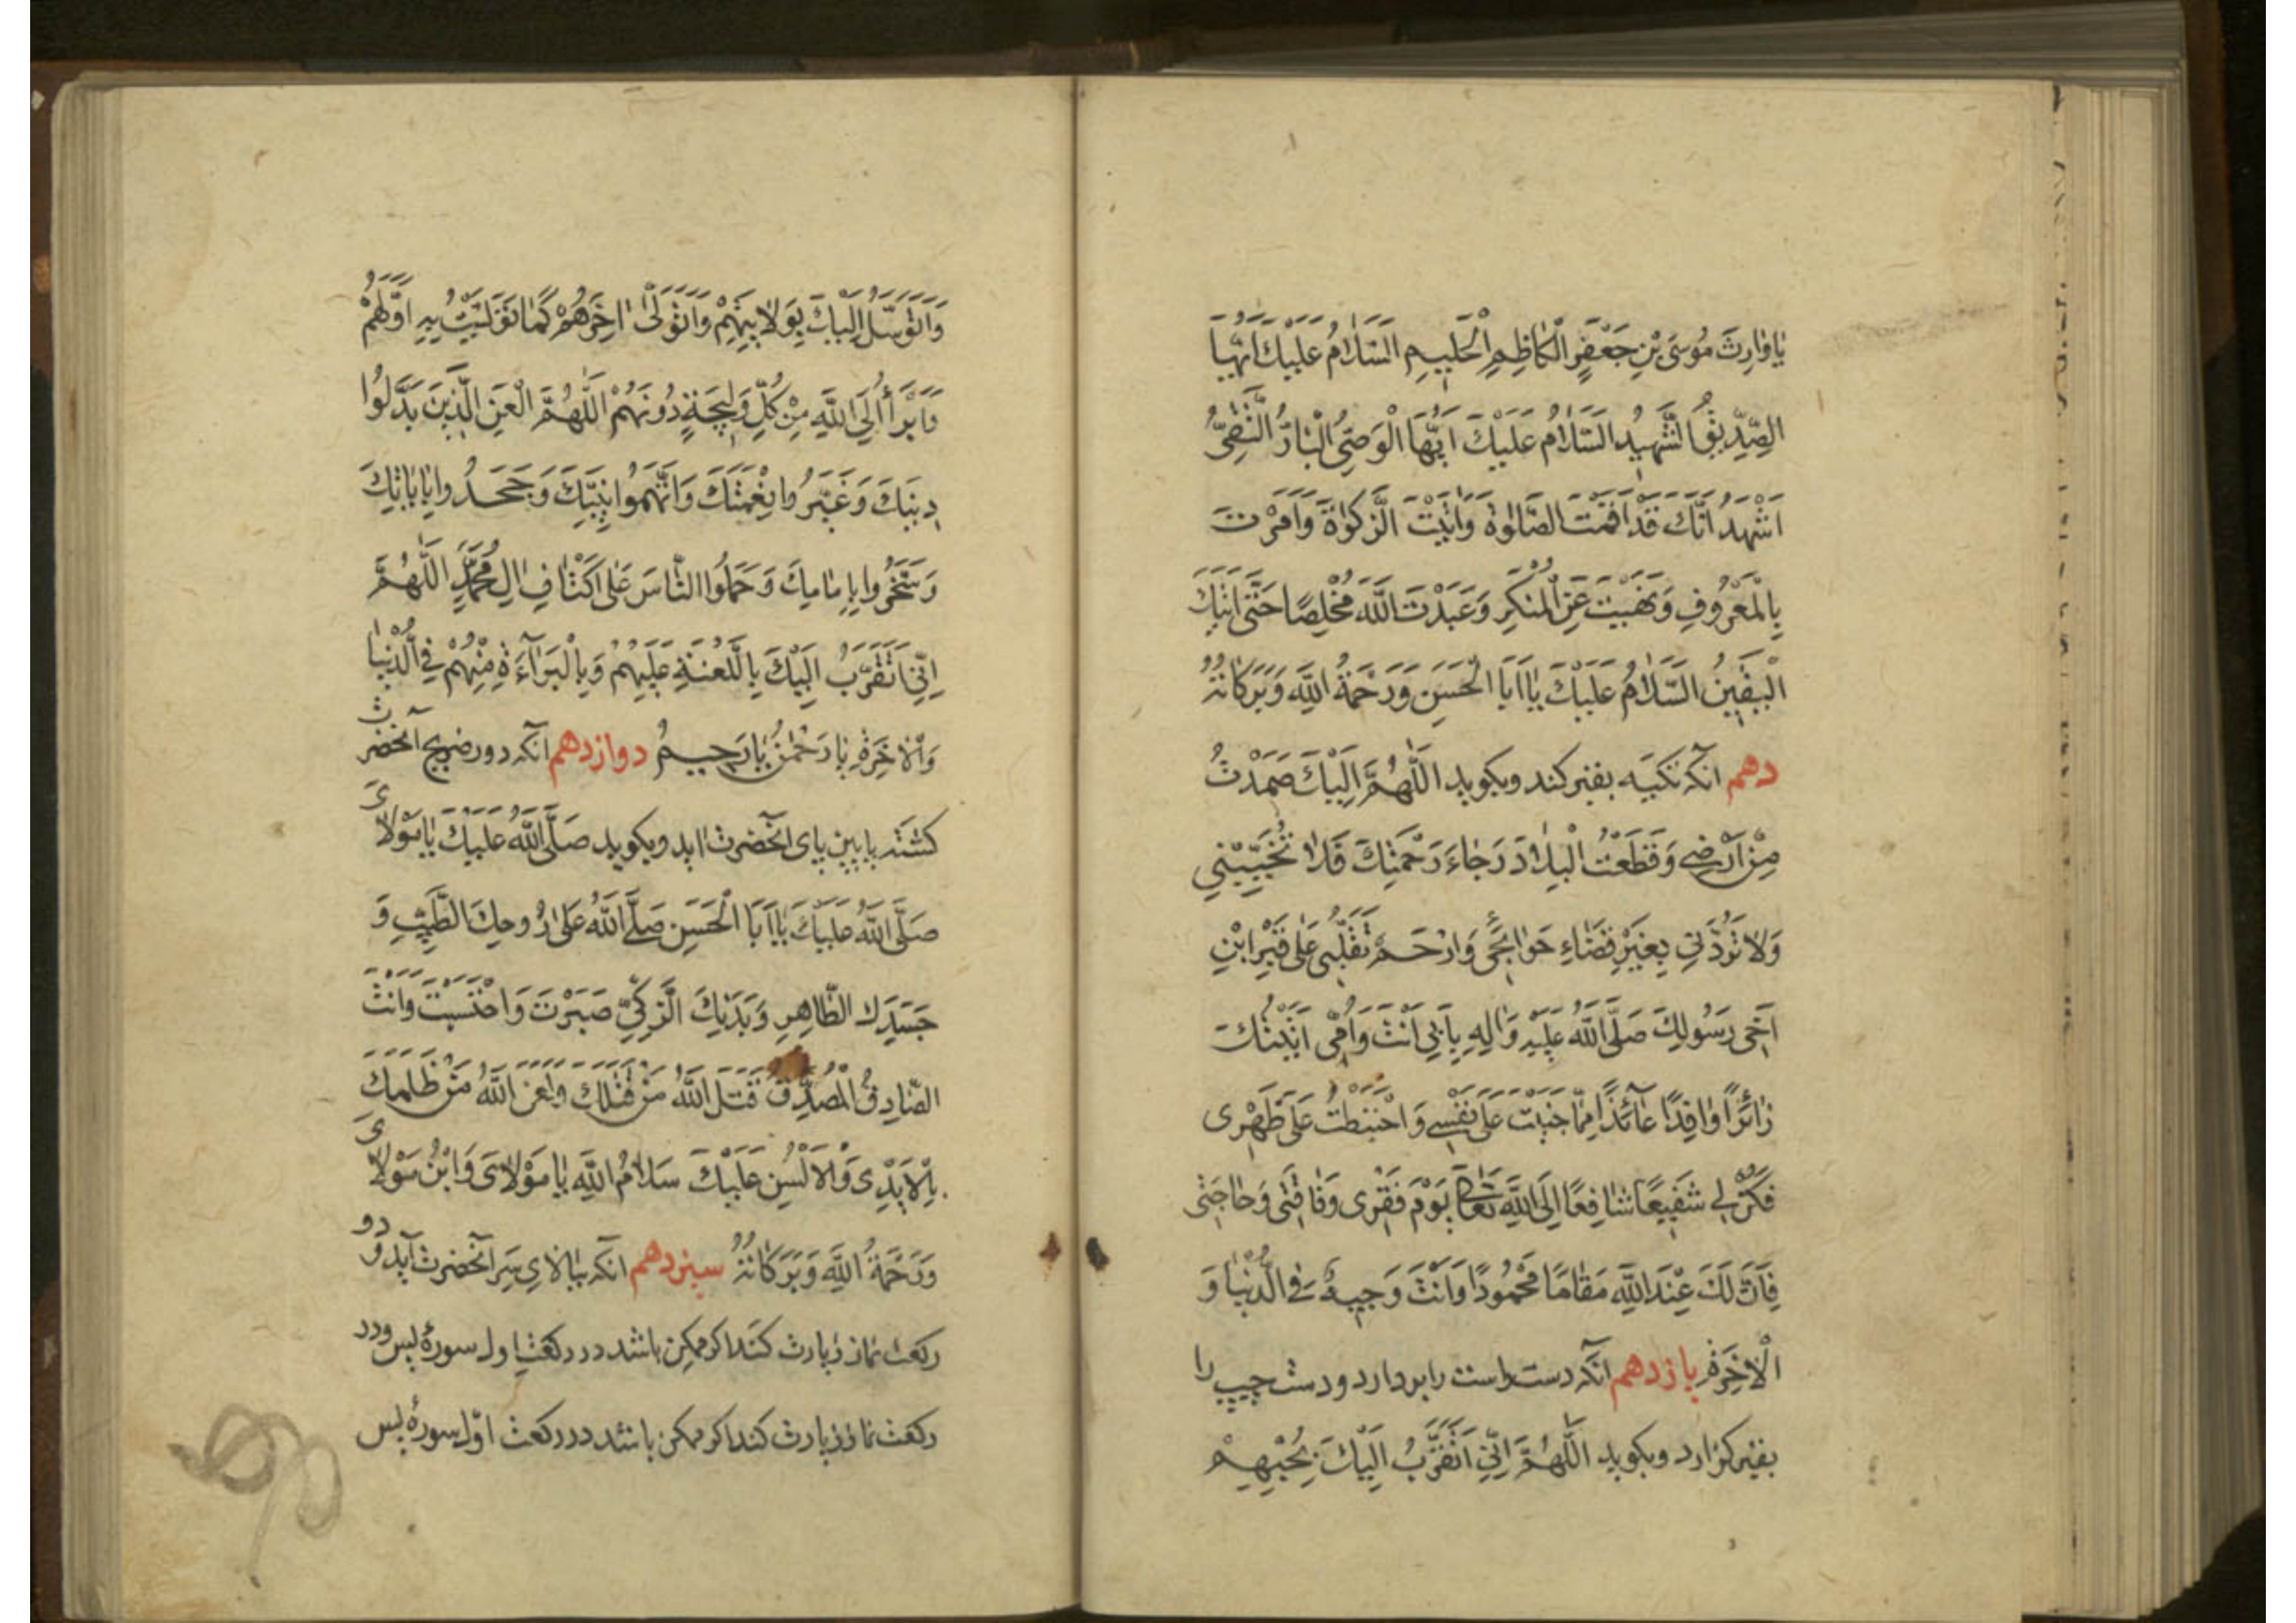 يَا وَارِثَ مُوسَى بْنِ جَعْفَرٍ الْكَاظِمِ الْحَلِيمِ السَّلَامُ عَلَيْكَ أَيُّهَا
الصِّدِّيقُ الشَّهِيدُ السَّلَامُ عَلَيْكَ أَيُّهَا الْوَصِيُّ الْبَارُّ التَّقِيُّ
اَشْهَدُ اَنَّكَ قَدْ اَقَمْتَ الصَّلٰوةَ وَاٰتَيْتَ الزَّكٰوةَ وَاَمَرْتَ
بِالْمَعْرُوفِ وَنَهَيْتَ عَنِ الْمُنْكَرِ وَعَبَدْتَ اللَّهَ مُخْلِصًا حَتَّى اَتٰيكَ
الْيَقِينُ السَّلَامُ عَلَيْكَ يَا اَبَا الْحَسَنِ وَرَحْمَةُ اللَّهِ وَبَرَكَاتُهُ
دهم آنکه تکیه بقبر کند و بکوید اَللَّهُمَّ اِلَيْكَ صَمَدْتُ
مِنْ اَرْضِي وَقَطَعْتُ الْبِلَادَ رَجَاءَ رَحْمَتِكَ فَلَا تُخَيِّبْنِي
وَلَا تَرُدَّنِي بِغَيْرِ قَضَاءِ حَوَائِجِي وَارْحَمْ تَقَلُّبِي عَلَى قَبْرِ ابْنِ
اَخِي رَسُولِكَ صَلَّى اللَّهُ عَلَيْهِ وَاٰلِهِ بِاَبِي اَنْتَ وَاُمِّي اَتَيْتُكَ
زَائِرًا وَافِدًا عَائِذًا مِمَّا جَنَيْتُ عَلَى نَفْسِي وَاحْتَطَبْتُ عَلَى ظَهْرِي
فَكُنْ لِي شَفِيعًا شَافِعًا اِلَى اللَّهِ تَعَالَى يَوْمَ فَقْرِي وَفَاقَتِي وَحَاجَتِي
فَاِنَّ لَكَ عِنْدَ اللَّهِ مَقَامًا مَحْمُودًا وَاَنْتَ وَجِيهٌ فِي الدُّنْيَا وَ
الْاٰخِرَةِ یازدهم آنکه دست راست را بردارد و دست چپ را
بقبر کزارد و بکوید اَللَّهُمَّ اِنِّي اَتَقَرَّبُ اِلَيْكَ بِحُبِّهِمْ
وَاَتَوَسَّلُ اِلَيْكَ بِوَلَايَتِهِمْ وَاَتَوَلَّى اٰخِرَهُمْ كَمَا تَوَلَّيْتُ بِهِ اَوَّلَهُمْ
وَاَبْرَأُ اِلَى اللَّهِ مِنْ كُلِّ وَلِيجَةٍ دُونَهُمْ اَللَّهُمَّ الْعَنِ الَّذِينَ بَدَّلُوا
دِينَكَ وَغَيَّرُوا نِعْمَتَكَ وَاتَّهَمُوا نَبِيَّكَ وَجَحَدُوا بِاٰيَاتِكَ
وَسَخِرُوا بِاِمَامِكَ وَحَمَلُوا النَّاسَ عَلَى اَكْتَافِ اٰلِ مُحَمَّدٍ اَللَّهُمَّ
اِنِّي اَتَقَرَّبُ اِلَيْكَ بِاللَّعْنَةِ عَلَيْهِمْ وَبِالْبَرَاءَةِ مِنْهُمْ فِي الدُّنْيَا
وَالْاٰخِرَةِ يَا رَحْمٰنُ يَا رَحِيمُ دوازدهم آنکه دور ضریح آنحضرت
کشته بپایین پای آنحضرت اید و بکوید صَلَّى اللَّهُ عَلَيْكَ يَا مَوْلَايَ
صَلَّى اللَّهُ عَلَيْكَ يَا اَبَا الْحَسَنِ صَلَّى اللَّهُ عَلَى رُوحِكَ الطَّيِّبِ وَ
جَسَدِكَ الطَّاهِرِ وَبَدَنِكَ الزَّكِيِّ صَبَرْتَ وَاحْتَسَبْتَ وَاَنْتَ
الصَّادِقُ الْمُصَدَّقُ قَتَلَ اللَّهُ مَنْ قَتَلَكَ وَلَعَنَ اللَّهُ مَنْ ظَلَمَكَ
بِالْاَيْدِي وَالْاَلْسُنِ عَلَيْكَ سَلَامُ اللَّهِ يَا مَوْلَايَ وَابْنَ مَوْلَايَ
وَرَحْمَةُ اللَّهِ وَبَرَكَاتُهُ سیزدهم آنکه ببالای سر آنحضرت آید و دو
رکعت نماز زیارت کند اکر ممکن باشد در رکعت اول سورهٔ یس و در
رکعت نماز زیارت کند اکر ممکن باشد در رکعت اوّل سورهٔ یس